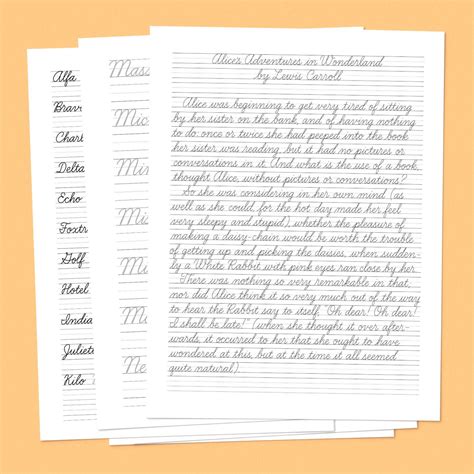 Alfa
Bravo
Charl
Delta
Echo
Foxtr
Golf
Hotel
India
Juliett
Kilo
Mass
Mic
Ne
Alice's Adventures in Wonderland
by Lewis Carroll
Alice was beginning to get very tired of sitting
by her sister on the bank, and of having nothing
to do: once or twice she had peeped into the book
her sister was reading, but it had no pictures or
conversations in it. And what is the use of a book,
thought Alice, without pictures or conversations?
So she was considering in her own mind (as
well as she could, for the hot day made her feel
very sleepy and stupid), whether the pleasure of
making a daisy-chain would be worth the trouble
of getting up and picking the daisies, when sudden-
ly a White Rabbit with pink eyes ran close by her.
There was nothing so very remarkable in that,
nor did Alice think it so very much out of the way
to hear the Rabbit say to itself, 'Oh dear! Oh dear!
I shall be late!' (when she thought it over after-
wards, it occurred to her that she ought to have
wondered at this, but at the time it all seemed
quite natural).